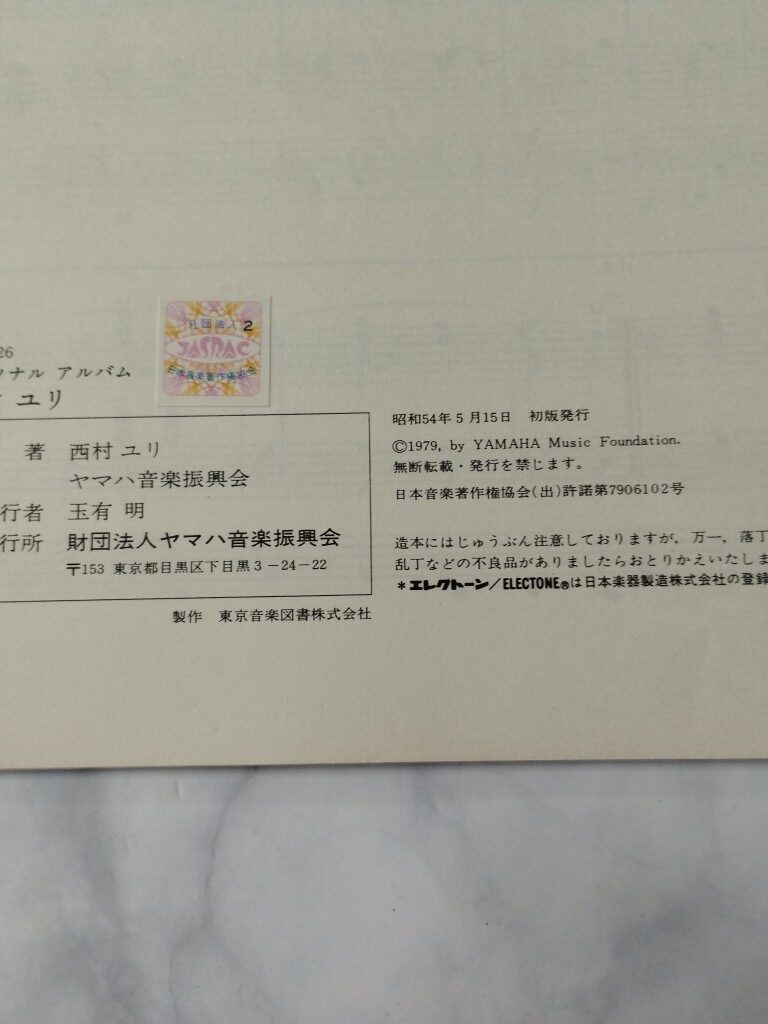 26
ソナル アルバム
ユリ
社団法人 2
JASRAC
日本音楽著作権協会
著 西村 ユリ
ヤマハ音楽振興会
行者 玉有 明
行所 財団法人ヤマハ音楽振興会
〒153 東京都目黒区下目黒3-24-22
製作 東京音楽図書株式会社
昭和54年5月15日 初版発行
©1979, by YAMAHA Music Foundation.
無断転載・発行を禁じます。
日本音楽著作権協会(出)許諾第7906102号
造本にはじゅうぶん注意しておりますが, 万一, 落丁
乱丁などの不良品がありましたらおとりかえいたしま
*エレクトーン/ELECTONE®は日本楽器製造株式会社の登録